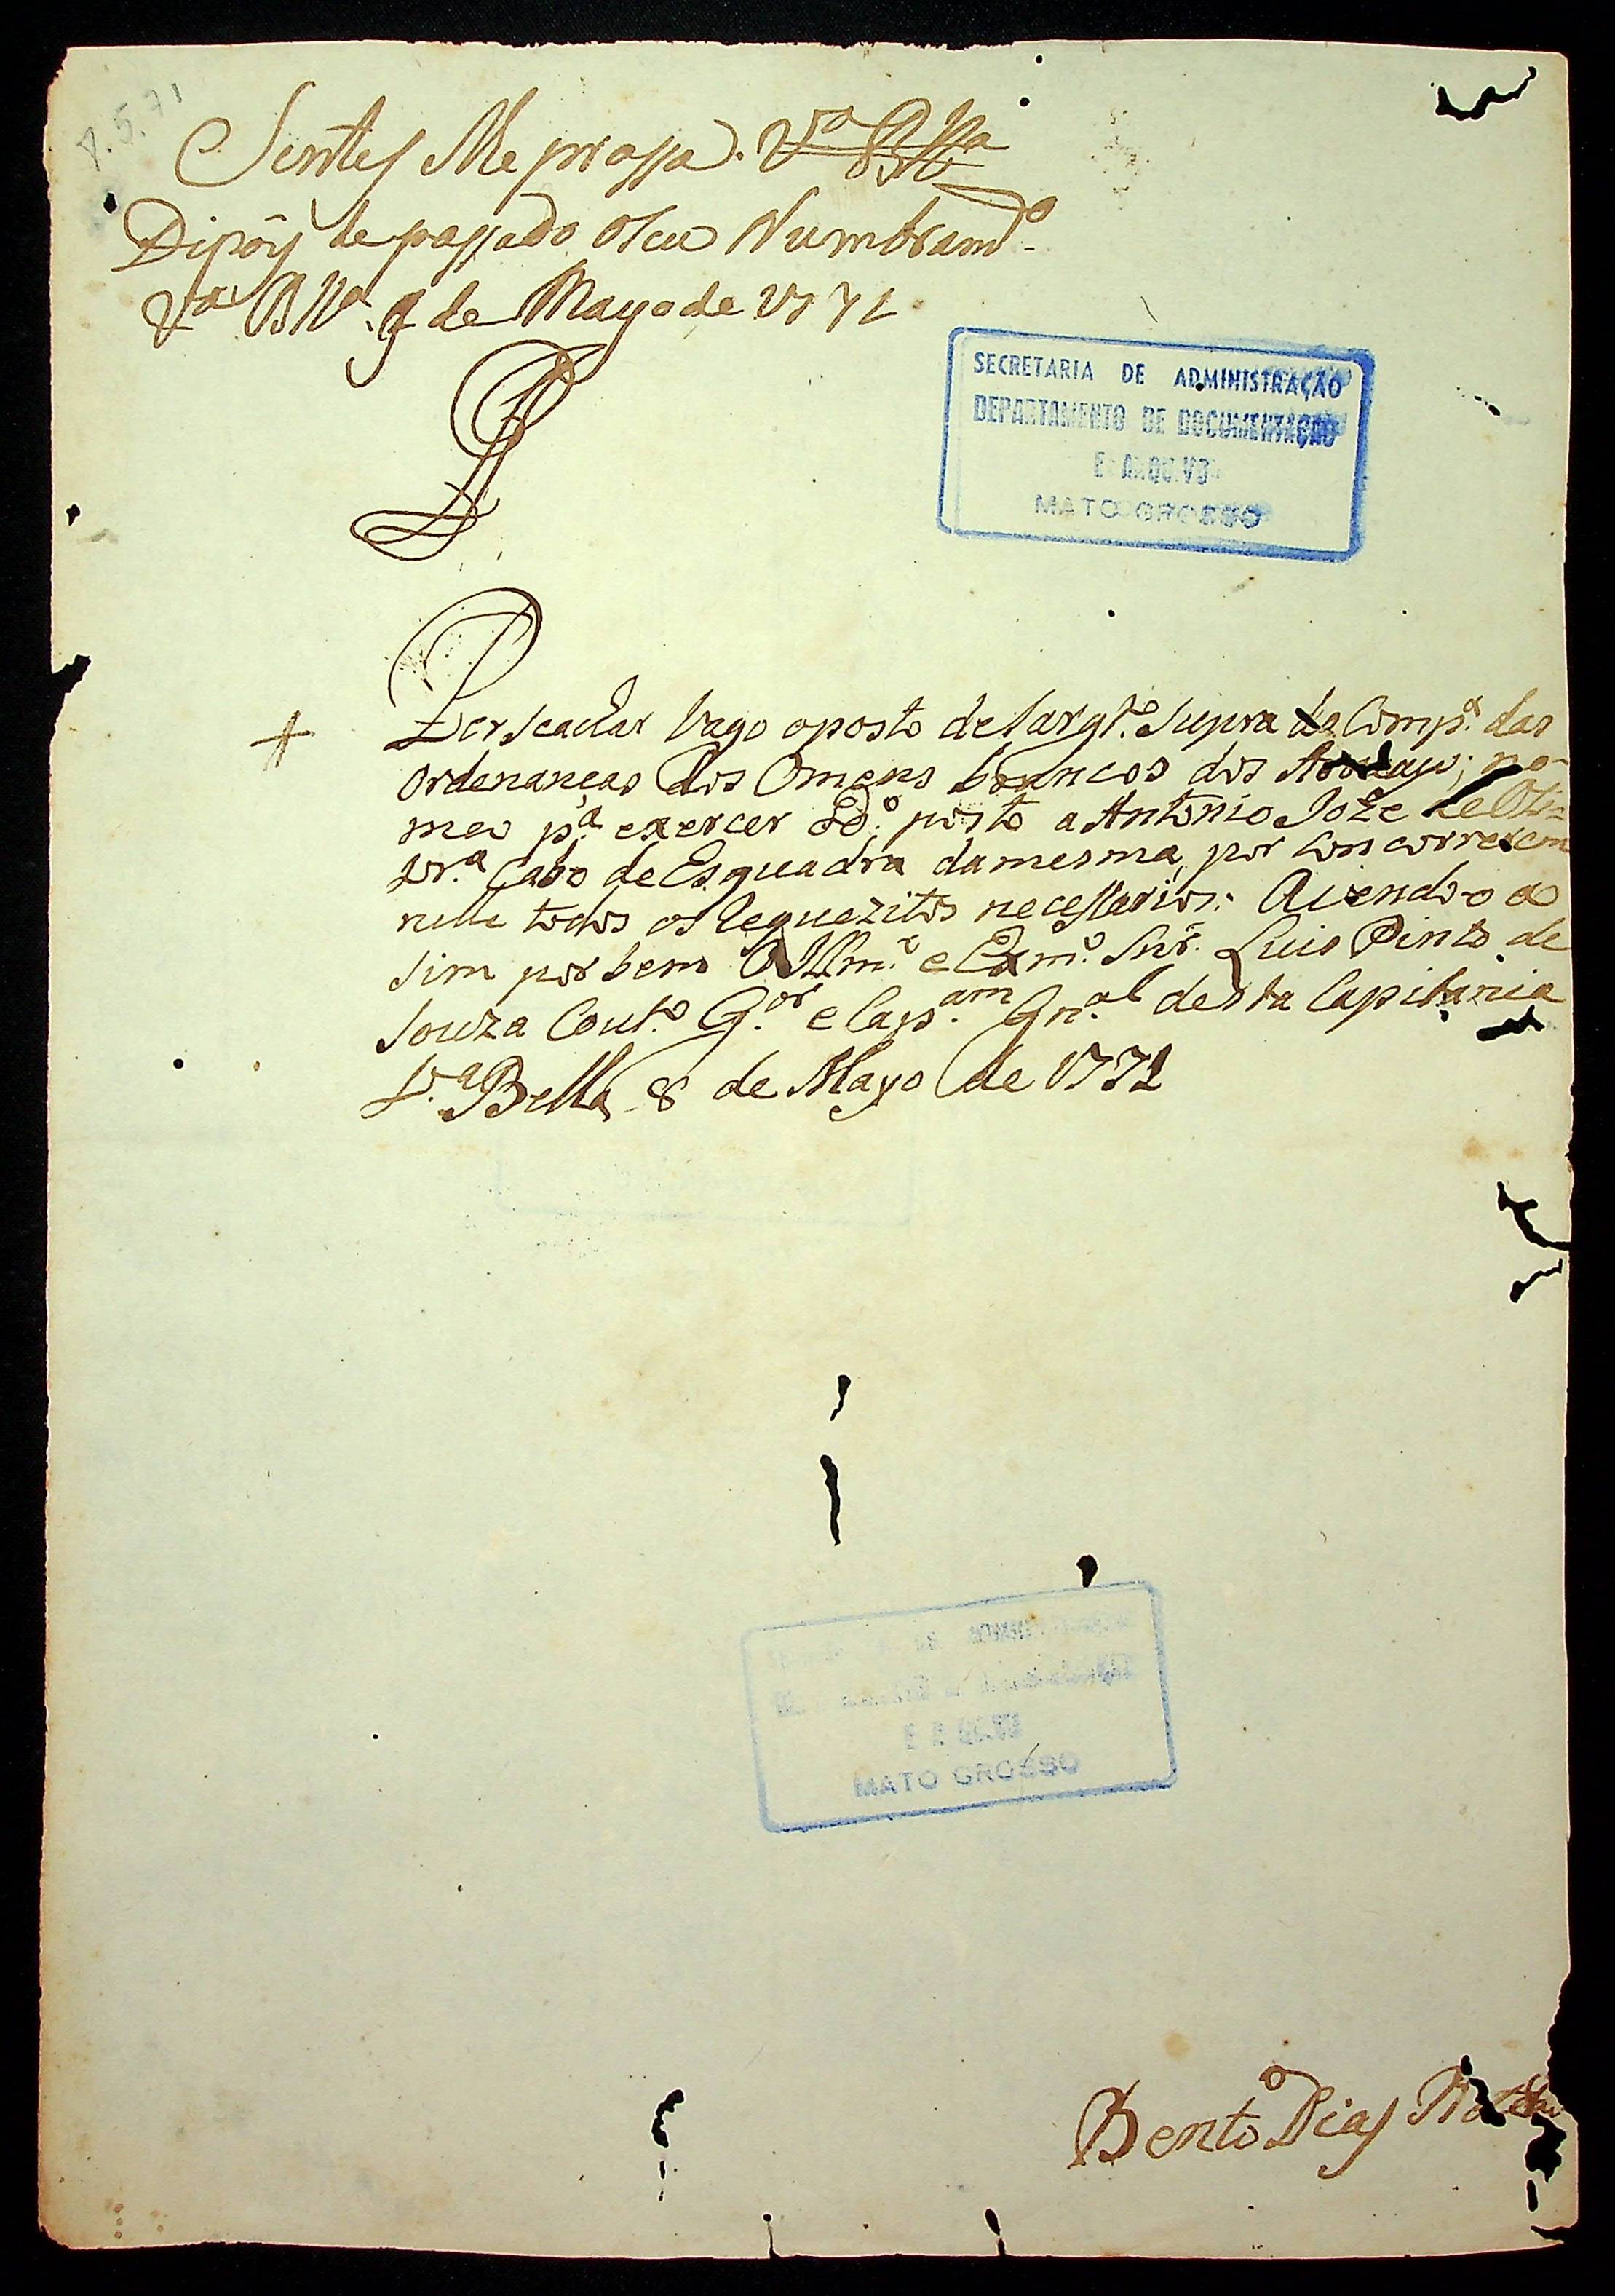 8.5.71
Sentes Me prossa. Va Bla
Dipoŷ de passado o seu Numbramto
Va Bla. 9 de Mayo de 1771
SECRETARIA DE ADMINISTRAÇÃO
DEPARTAMENTO DE DOCUMENTAÇÃO
E ARQUIVO
MATO GROSSO
Por seachar Vago oposto de Sargto. Supra da Compa. das
Ordenanças dos Omens brancos dos Arrayas; no-
meo pa. exercer o do. posto a Antonio Joze de Oli-
vra. Cabo de Esquadra damesma, por Concorrerem
nelle todos os Requezitos necessarios: Avendo-o a
sim por bem O Illmo. e Exmo. Snr. Luis Pinto de
Souza Couto. Gor. e Capam. Gnal. desta Capitania
Va. Bella 8 de Mayo de 1771
MATO GROSSO
Bento Dias